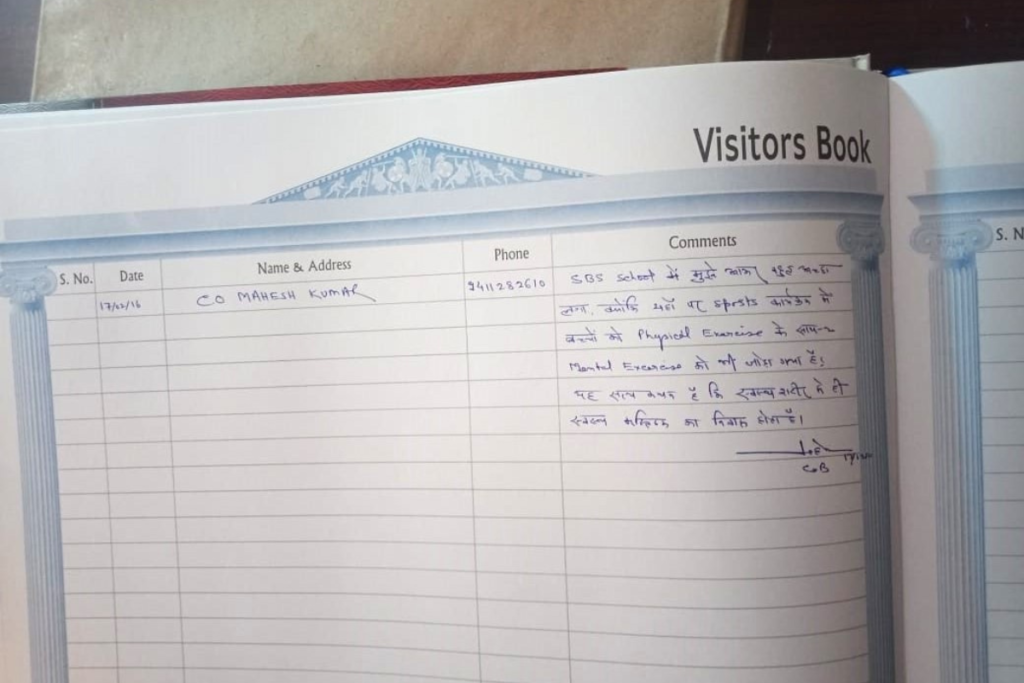 Visitors Book
S. No. Date Name & Address Phone Comments
17/02/16 CO MAHESH KUMAR 9411282610 SBS School में मुझे आकर बहुत अच्छा
लगा, क्योंकि यहाँ पर sports कार्यक्रम में
बच्चों को Physical Exercise के साथ-२
Mental Excercise को भी जोड़ा गया है;
यह सत्य कथन है कि स्वस्थ शरीर में ही
स्वस्थ मस्तिष्क का निवास होता है।
COB
S. N